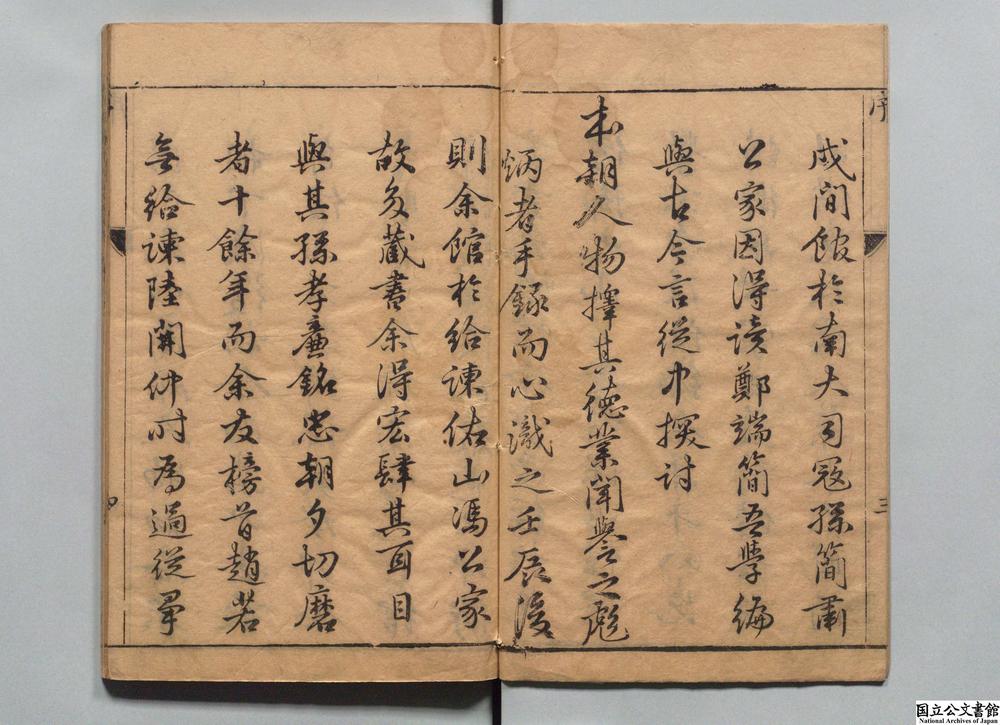 序
三
戌間館於南大司寇孫簡肅
公家因得讀鄭端簡吾學編
與古今言從中探討
本朝人物擇其德業聞譽之彪
炳者手錄而心識之壬辰後
則余館於給諫佑山馮公家
故多藏書余得宏肆其耳目
與其孫孝廉銘忠朝夕切磨
者十餘年而余友榜首趙若
無給諫陸開仲時為過從畢
国立公文書館
National Archives of Japan